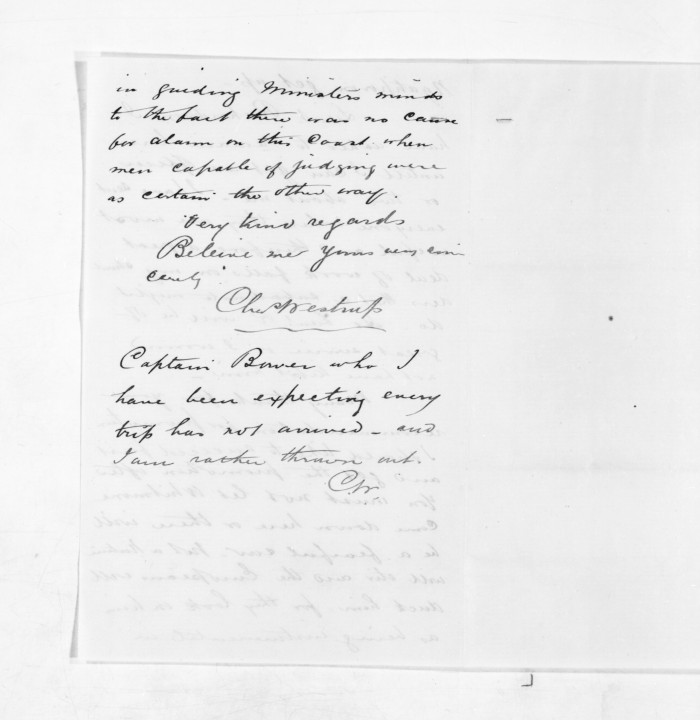 in guiding Ministers minds
to the fact there was no cause
for alarm on this Coast when
men capable of judging were
as certain the other way
Very kind regards
Beleive me Yours very sin
cerely
Chas Westrup
Captain Bower who I
have been expecting every
trip has not arrived - and
I am rather thrown out.
C.W.